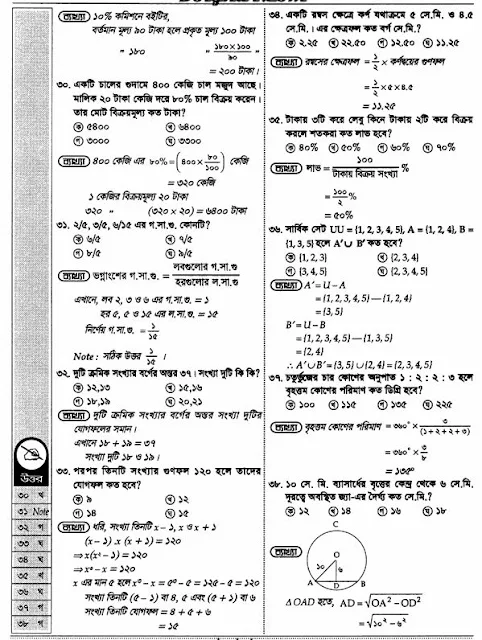 ব্যাখ্যা ১০% কমিশনে বইটির,
বর্তমান মূল্য ৯০ টাকা হলে প্রকৃত মূল্য ১০০ টাকা
" ১৮০ " ১৮০×১০০/৯০
= ২০০ টাকা।
৩০. একটি চালের গুদামে ৪০০ কেজি চাল মজুদ আছে।
মালিক ২০ টাকা কেজি দরে ৮০% চাল বিক্রয় করেন।
তার মোট বিক্রয়মূল্য কত টাকা?
ক ৫৪০০ খ ৬৪০০
গ ৩০০০ ঘ ৩৩০০
ব্যাখ্যা ৪০০ কেজি এর ৮০% = (৪০০×৮০/১০০) কেজি
= ৩২০ কেজি
১ কেজির বিক্রয়মূল্য ২০ টাকা
৩২০ " (৩২০ × ২০) = ৬৪০০ টাকা
৩১. ২/৫, ৩/৫, ৬/১৫ এর গ.সা.গু. কোনটি?
ক ৬/৫ খ ৭/৫
গ ৮/৫ ঘ ৯/৫
ব্যাখ্যা ভগ্নাংশের গ.সা.গু. = লবগুলোর গ.সা.গু/হরগুলোর ল.সা.গু.
এখানে, লব ২, ৩ ও ৬ এর গ.সা.গু. = ১
হর ৫, ৫ ও ১৫ এর ল.সা.গু. = ১৫
নির্ণেয় গ.সা.গু. = ১/১৫
Note : সঠিক উত্তর ১/১৫ ।
৩২. দুটি ক্রমিক সংখ্যার বর্গের অন্তর ৩৭। সংখ্যা দুটি কি কি?
ক ১২,১৩ খ ১৫,১৬
গ ১৮,১৯ ঘ ২০,২১
ব্যাখ্যা দুটি ক্রমিক সংখ্যার বর্গের অন্তর সংখ্যা দুটির
যোগফলের সমান।
এখানে ১৮ + ১৯ = ৩৭
সংখ্যা দুটি ১৮ ও ১৯।
৩৩. পরপর তিনটি সংখ্যার গুণফল ১২০ হলে তাদের
যোগফল কত হবে?
ক ৯ খ ১২
গ ১৪ ঘ ১৫
ব্যাখ্যা ধরি, সংখ্যা তিনটি x – ১, x ও x + ১
(x – ১) .x (x + ১) = ১২০
⇒ x(x² – ১) = ১২০
⇒ x³ – x = ১২০
x এর মান ৫ হলে x³ – x = ৫³ – ৫ = ১২৫ – ৫ = ১২০
সংখ্যা তিনটি (৫ – ১) বা ৪, ৫ এবং (৫ + ১) বা ৬
সংখ্যা তিনটি যোগফল = ৪ + ৫ + ৬
= ১৫
উত্তর
৩০ খ
৩১ Note
৩২ গ
৩৩ ঘ
৩৪ ঘ
৩৫ খ
৩৬ ঘ
৩৭ গ
৩৮ গ
৩৪. একটি রম্বস ক্ষেত্রে কর্ণ যথাক্রমে ৫ সে.মি. ও ৪.৫
সে.মি.। এর ক্ষেত্রফল কত বর্গ সে.মি.?
ক ২.২৫ খ ২২.৫০ গ ১২.৫০ ঘ ১১.২৫
ব্যাখ্যা রম্বসের ক্ষেত্রফল = ১/২ × কর্ণদ্বয়ের গুণফল
= ১/২ × ৫ × ৪.৫
= ১১.২৫
৩৫. টাকায় ৩টি করে লেবু কিনে টাকায় ২টি করে বিক্রয়
করলে শতকরা কত লাভ হবে?
ক ৪০% খ ৫০% গ ৬০% ঘ ৭০%
ব্যাখ্যা লাভ = ১০০/টাকায় বিক্রয় সংখ্যা %
= ১০০/২ %
= ৫০%
৩৬. সার্বিক সেট UU = {1, 2, 3, 4, 5}, A = {1, 2, 4}, B =
{1, 3, 5} হলে A′∪ B′ কত হবে?
ক {1, 2, 3} খ {2, 3, 4}
গ {3, 4, 5} ঘ {2, 3, 4, 5}
ব্যাখ্যা A′ = U – A
= {1, 2, 3, 4, 5} — {1, 2, 4}
= {3, 5}
B′ = U – B
= {1, 2, 3, 4, 5} — {1, 3, 5}
= {2, 4}
∴ A′∪ B′ = {3, 5} ∪ {2, 4} = {2, 3, 4, 5}
৩৭. চতুর্ভুজের চার কোণের অনুপাত ১ : ২ : ২ : ৩ হলে
বৃহত্তম কোণের পরিমাণ কত ডিগ্রি হবে?
ক ১০০ খ ১১৫ গ ১৩৫ ঘ ২২৫
ব্যাখ্যা বৃহত্তম কোণের পরিমাণ = ৩৬০° × ৩/(১+২+২+৩)
= ৩৬০° × ৩/৮
= ১৩৫°
৩৮. ১০ সে. মি. ব্যাসার্ধের বৃত্তের কেন্দ্র থেকে ৬ সে.মি.
দূরত্বে অবস্থিত জ্যা-এর দৈর্ঘ্য কত সে.মি.?
ক ১২ খ ১৪ গ ১৬ ঘ ১৮
ব্যাখ্যা
C
O
১০ ৬
A D B
△ OAD হতে, AD = √OA² – OD²
= √১০² – ৬²